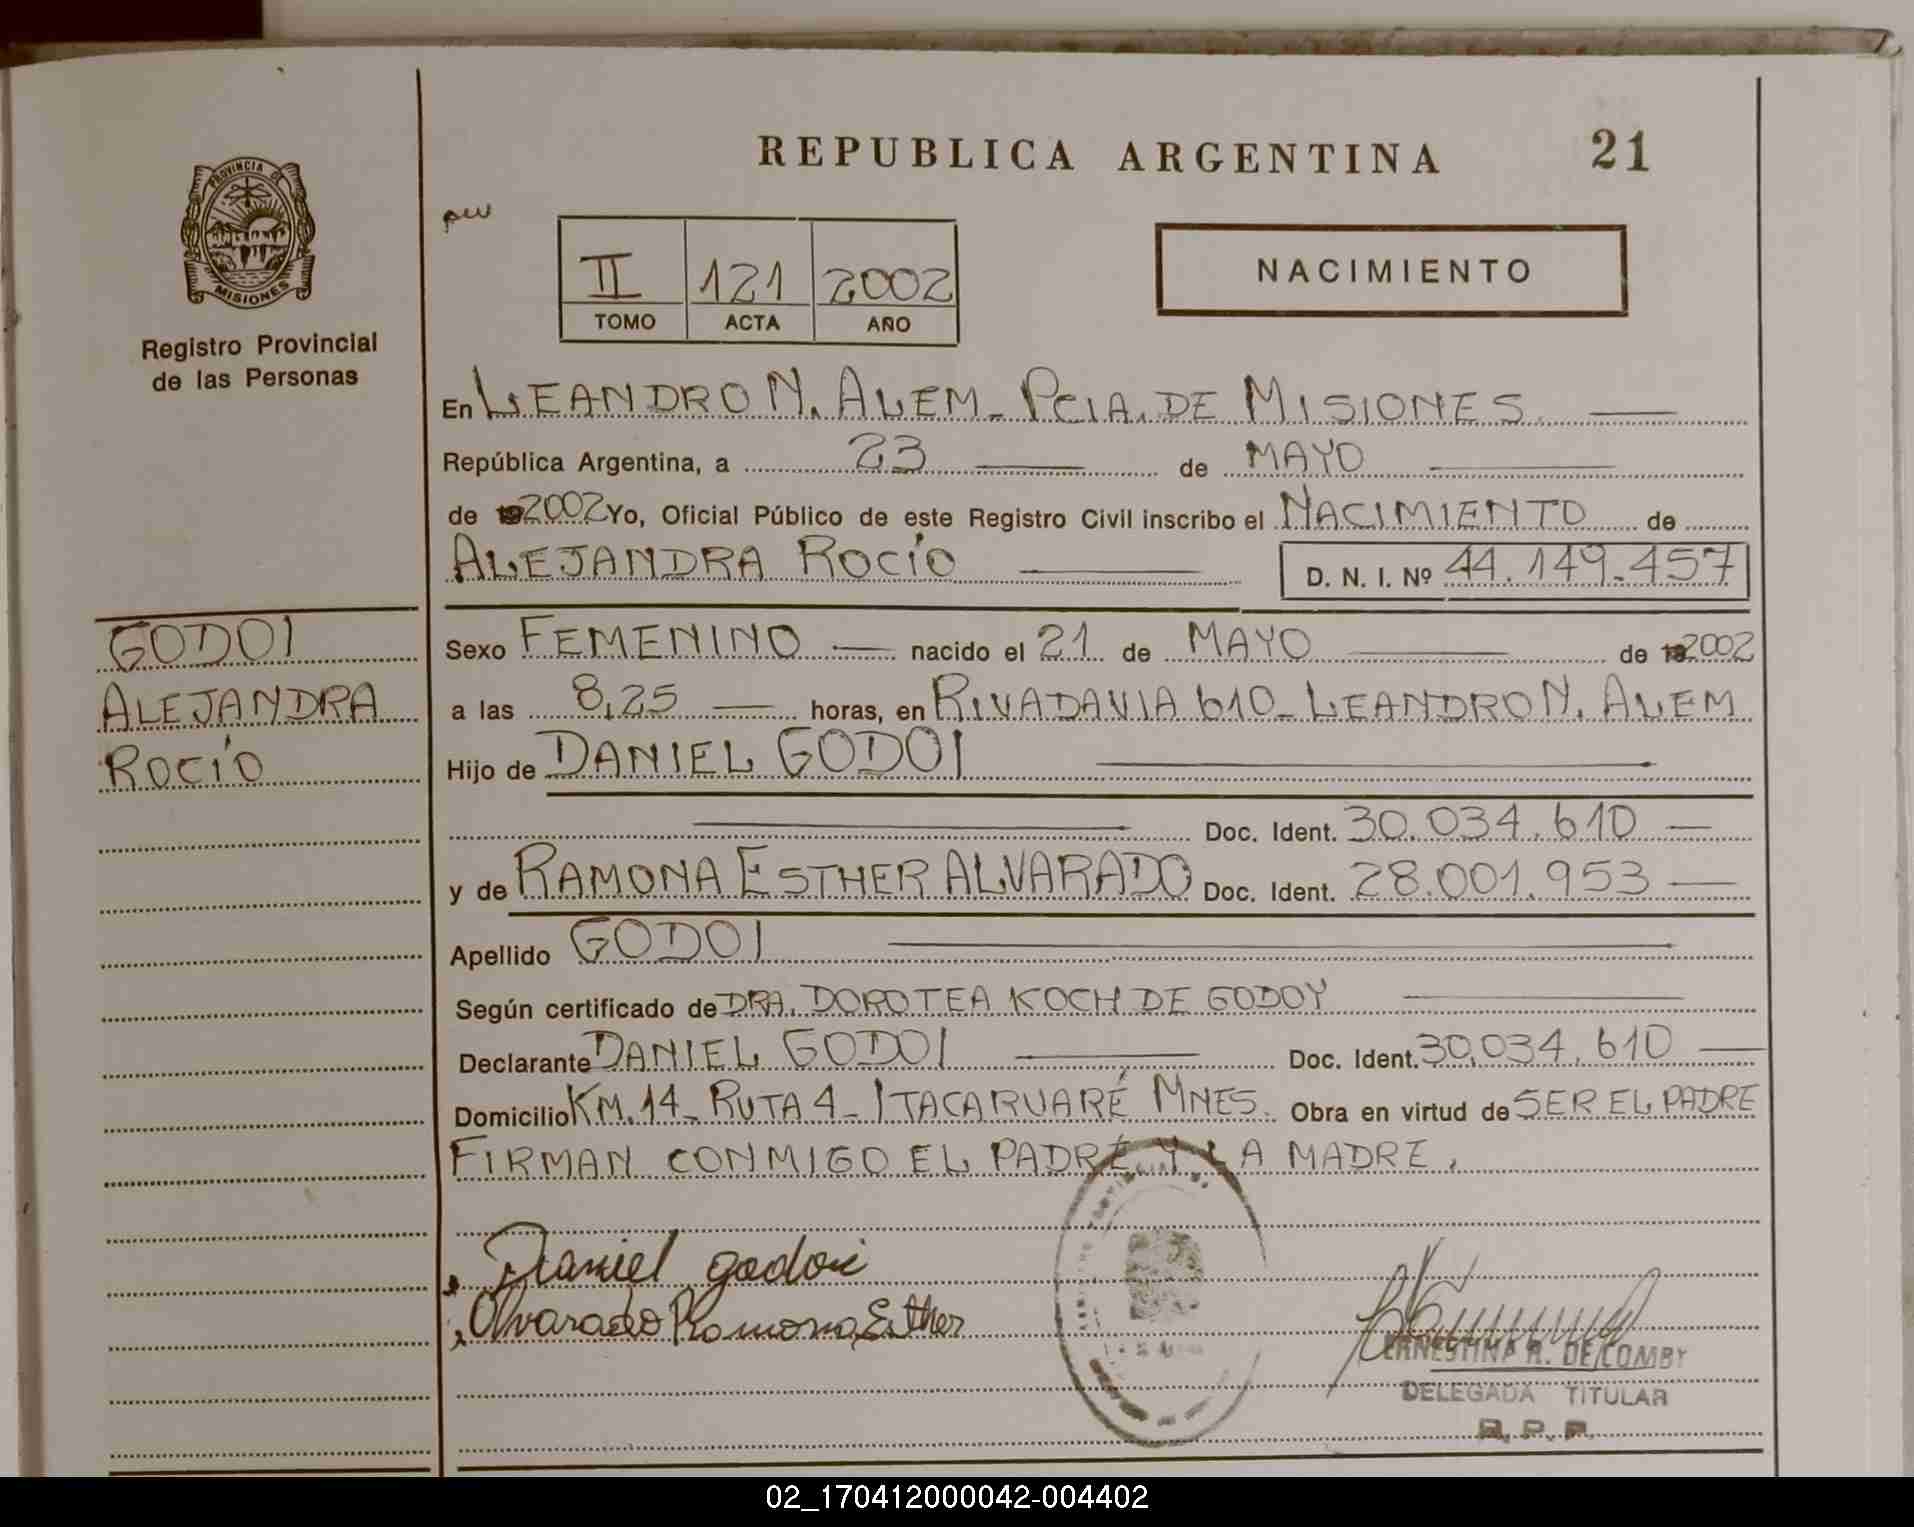 REPUBLICA ARGENTINA 21
PROVINCIA DE
MISIONES
Registro Provincial
de las Personas
II 121 2002
TOMO ACTA AÑO
NACIMIENTO
En LEANDRO N. ALEM - PCIA. DE MISIONES.
República Argentina, a 23 de MAYO
de 192002 Yo, Oficial Público de este Registro Civil inscribo el NACIMIENTO de
ALEJANDRA ROCÍO D. N. I. Nº 44.149.457
GODOI
ALEJANDRA
ROCÍO
Sexo FEMENINO nacido el 21 de MAYO de 192002
a las 8,25 horas, en RIVADAVIA 610 - LEANDRO N. ALEM
Hijo de DANIEL GODOI
Doc. Ident. 30.034.610
y de RAMONA ESTHER ALVARADO Doc. Ident. 28.001.953
Apellido GODOI
Según certificado de DRA. DOROTEA KOCH DE GODOY
Declarante DANIEL GODOI Doc. Ident. 30.034.610
Domicilio KM. 14 - RUTA 4 - ITACARUARÉ MNES. Obra en virtud de SER EL PADRE
FIRMAN CONMIGO EL PADRE Y LA MADRE.
Daniel godoi
Alvarado Ramona Esther
ERNESTINA R. DE COMBY
DELEGADA TITULAR
R. P. P.
02_170412000042-004402